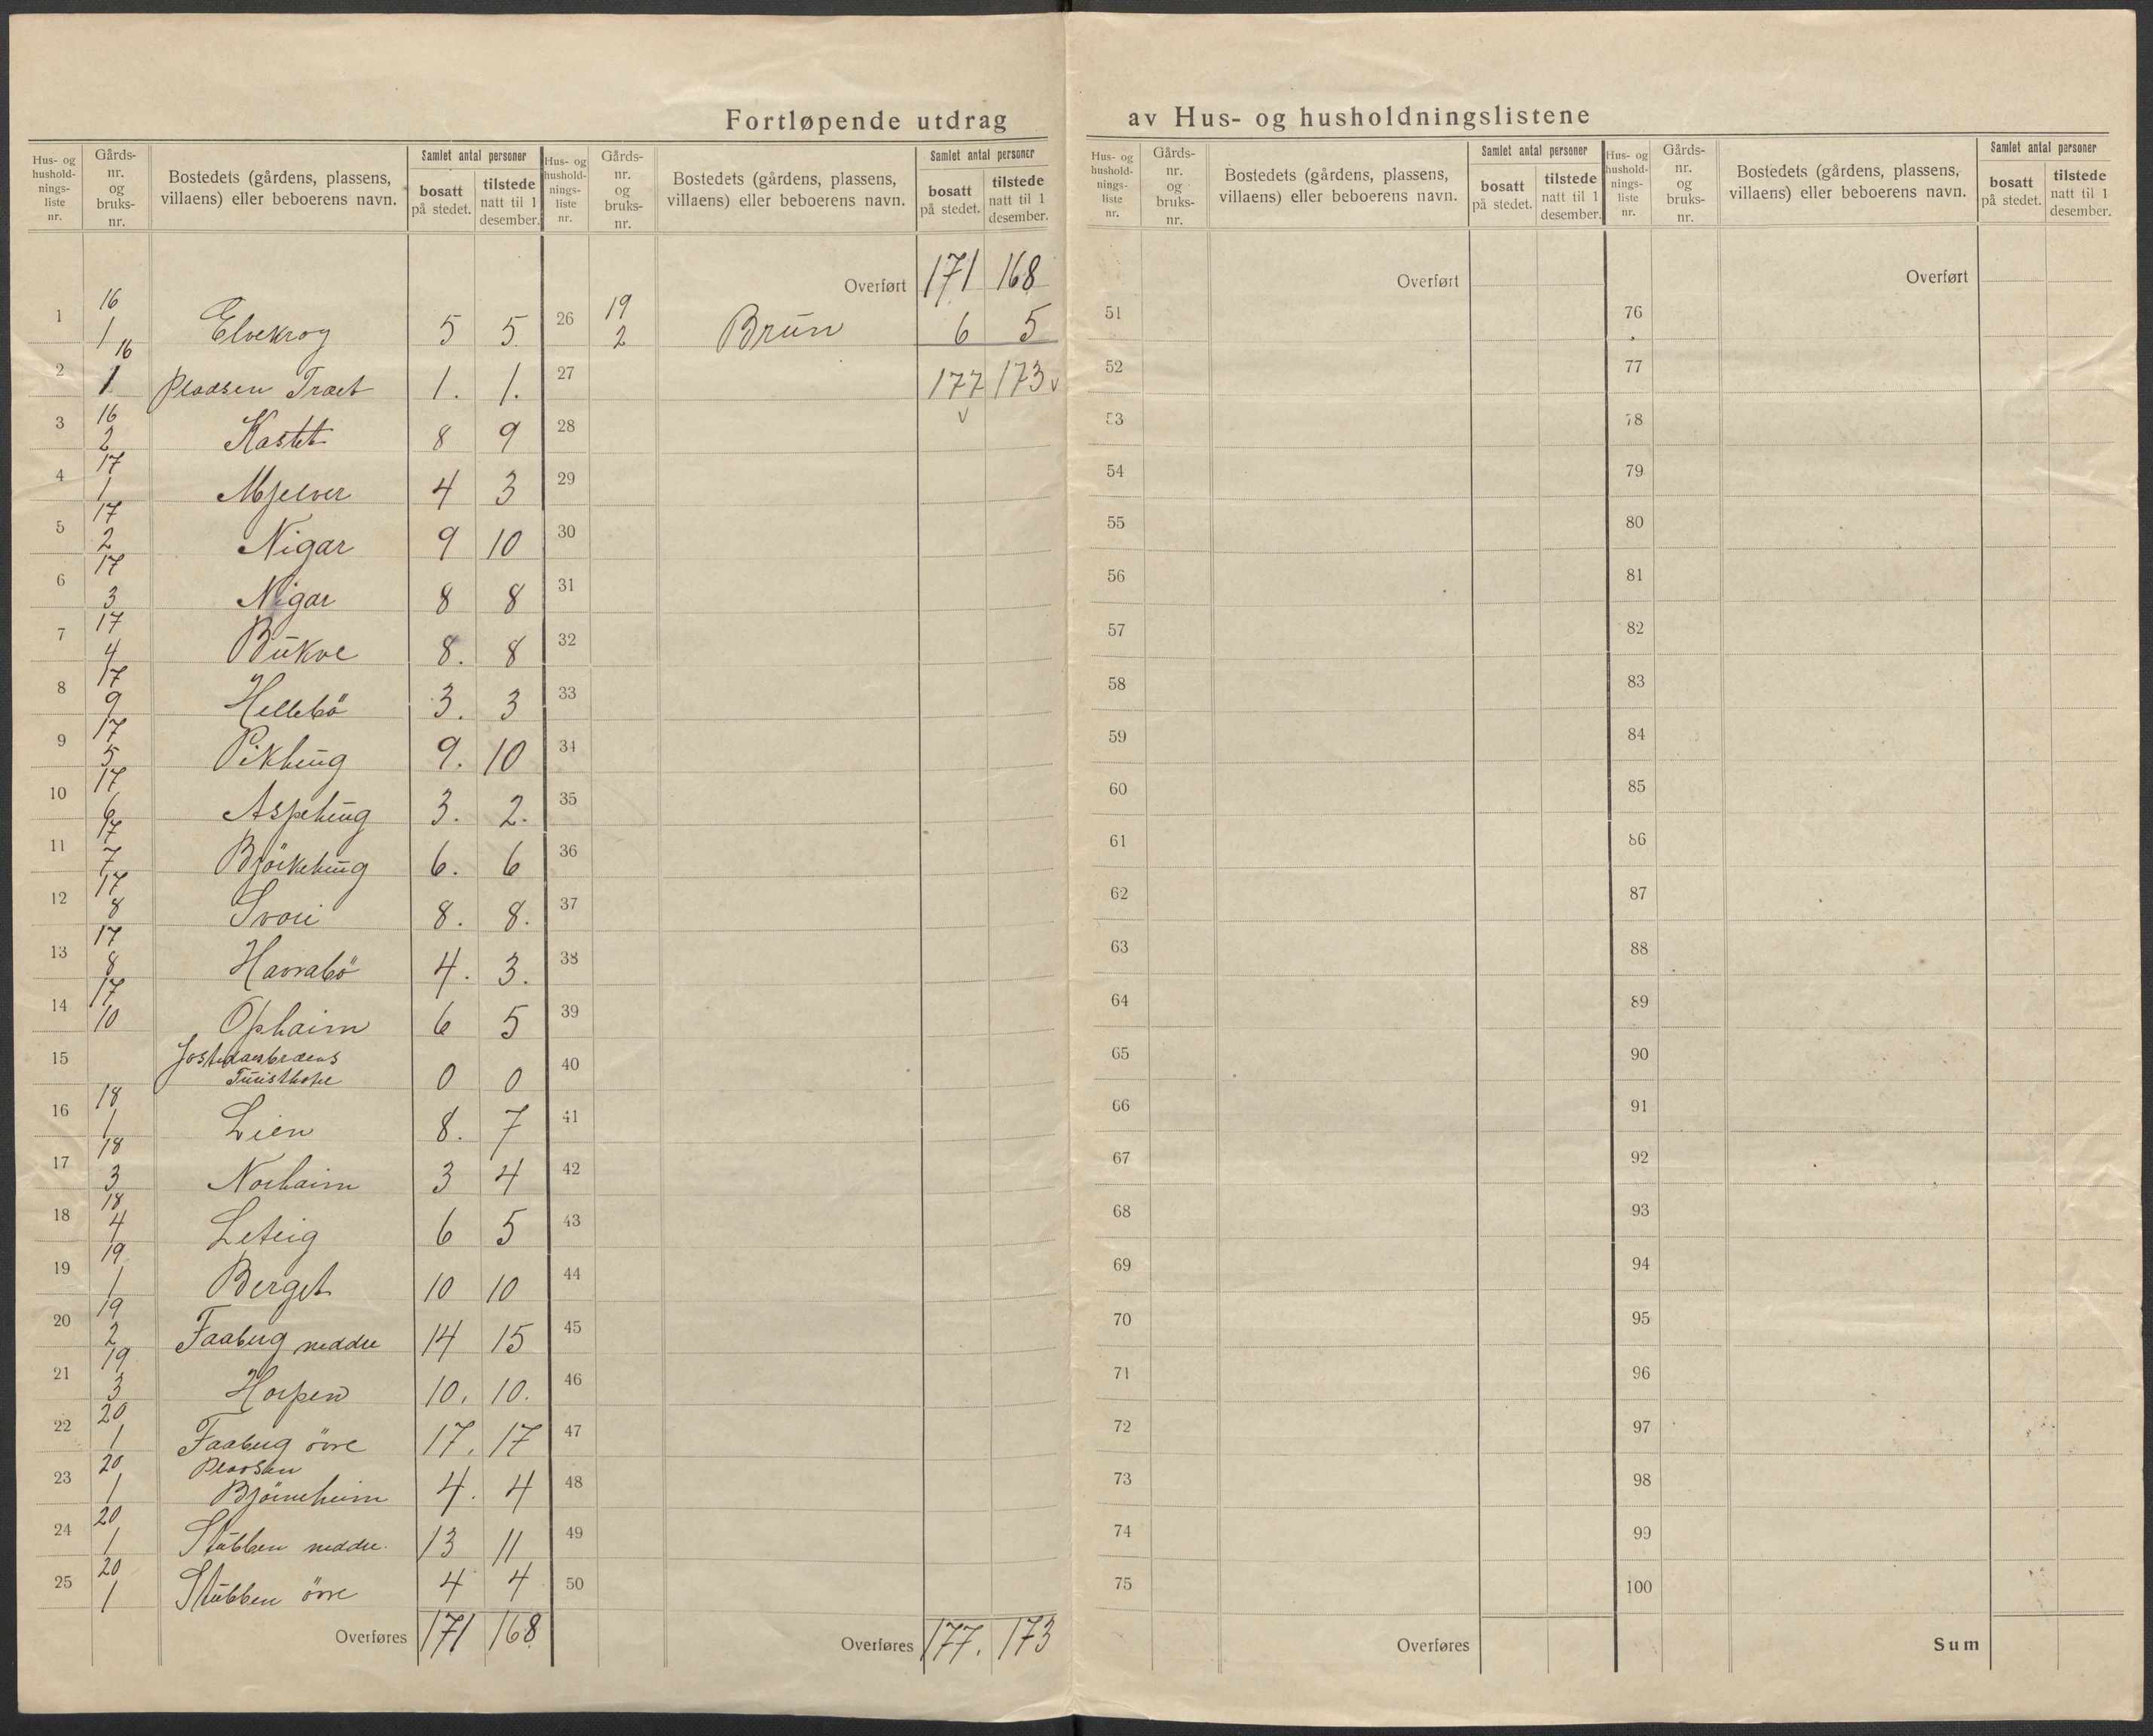 Fortløpende utdrag av Hus- og husholdningslistene
Hus- og hushold-nings-liste nr. Gårds-nr. og bruks-nr. Bostedets (gårdens, plassens, villaens) eller beboerens navn. Samlet antal personer bosatt på stedet. tilstede natt til 1 desember.
1 16 1 Elvekrog 5 5
2 16 1 Pladsen Træet 1. 1.
3 16 2 Kastet 8 9
4 17 1 Mjelver 4 3
5 17 2 Nigar 9 10
6 17 3 Nigar 8 8
7 17 4 Bukve 8. 8
8 17 9 Hellebö 3. 3
9 17 5 Pikhaug 9. 10
10 17 6 Aspehaug 3. 2.
11 17 7 Björkehaug 6. 6
12 17 8 Svori 8. 8.
13 17 8 Havrabö 4. 3.
14 17 10 Ophaim 6 5
15 Jostedalsbræens
Turisthotel 0 0
16 18 1 Lien 8. 7
17 18 3 Norhaim 3 4
18 18 4 Leteig 6 5
19 19 1 Berget 10 10
20 19 2 Faaberg neddre 14 15
21 19 3 Horpen 10. 10.
22 20 1 Faaberg övre 17. 17
23 20 1 Pladsen
Björneheim 4. 4
24 20 1 Stubben neddre. 13 11
25 20 1 Stubben övre 4 4
Overføres 171 168
Hus- og hushold-nings-liste nr. Gårds-nr. og bruks-nr. Bostedets (gårdens, plassens, villaens) eller beboerens navn. Samlet antal personer bosatt på stedet. tilstede natt til 1 desember.
Overført 171 168
26 19 2 Brun 6 5
27 177 173 v
v
28
29
30
31
32
33
34
35
36
37
38
39
40
41
42
43
44
45
46
47
48
49
50
Overføres 177. 173
Hus- og hushold-nings-liste nr. Gårds-nr. og bruks-nr. Bostedets (gårdens, plassens, villaens) eller beboerens navn. Samlet antal personer bosatt på stedet. tilstede natt til 1 desember.
Overført
51
52
53
54
55
56
57
58
59
60
61
62
63
64
65
66
67
68
69
70
71
72
73
74
75
Overføres
Hus- og hushold-nings-liste nr. Gårds-nr. og bruks-nr. Bostedets (gårdens, plassens, villaens) eller beboerens navn. Samlet antal personer bosatt på stedet. tilstede natt til 1 desember.
Overført
76
77
78
79
80
81
82
83
84
85
86
87
88
89
90
91
92
93
94
95
96
97
98
99
100
Sum